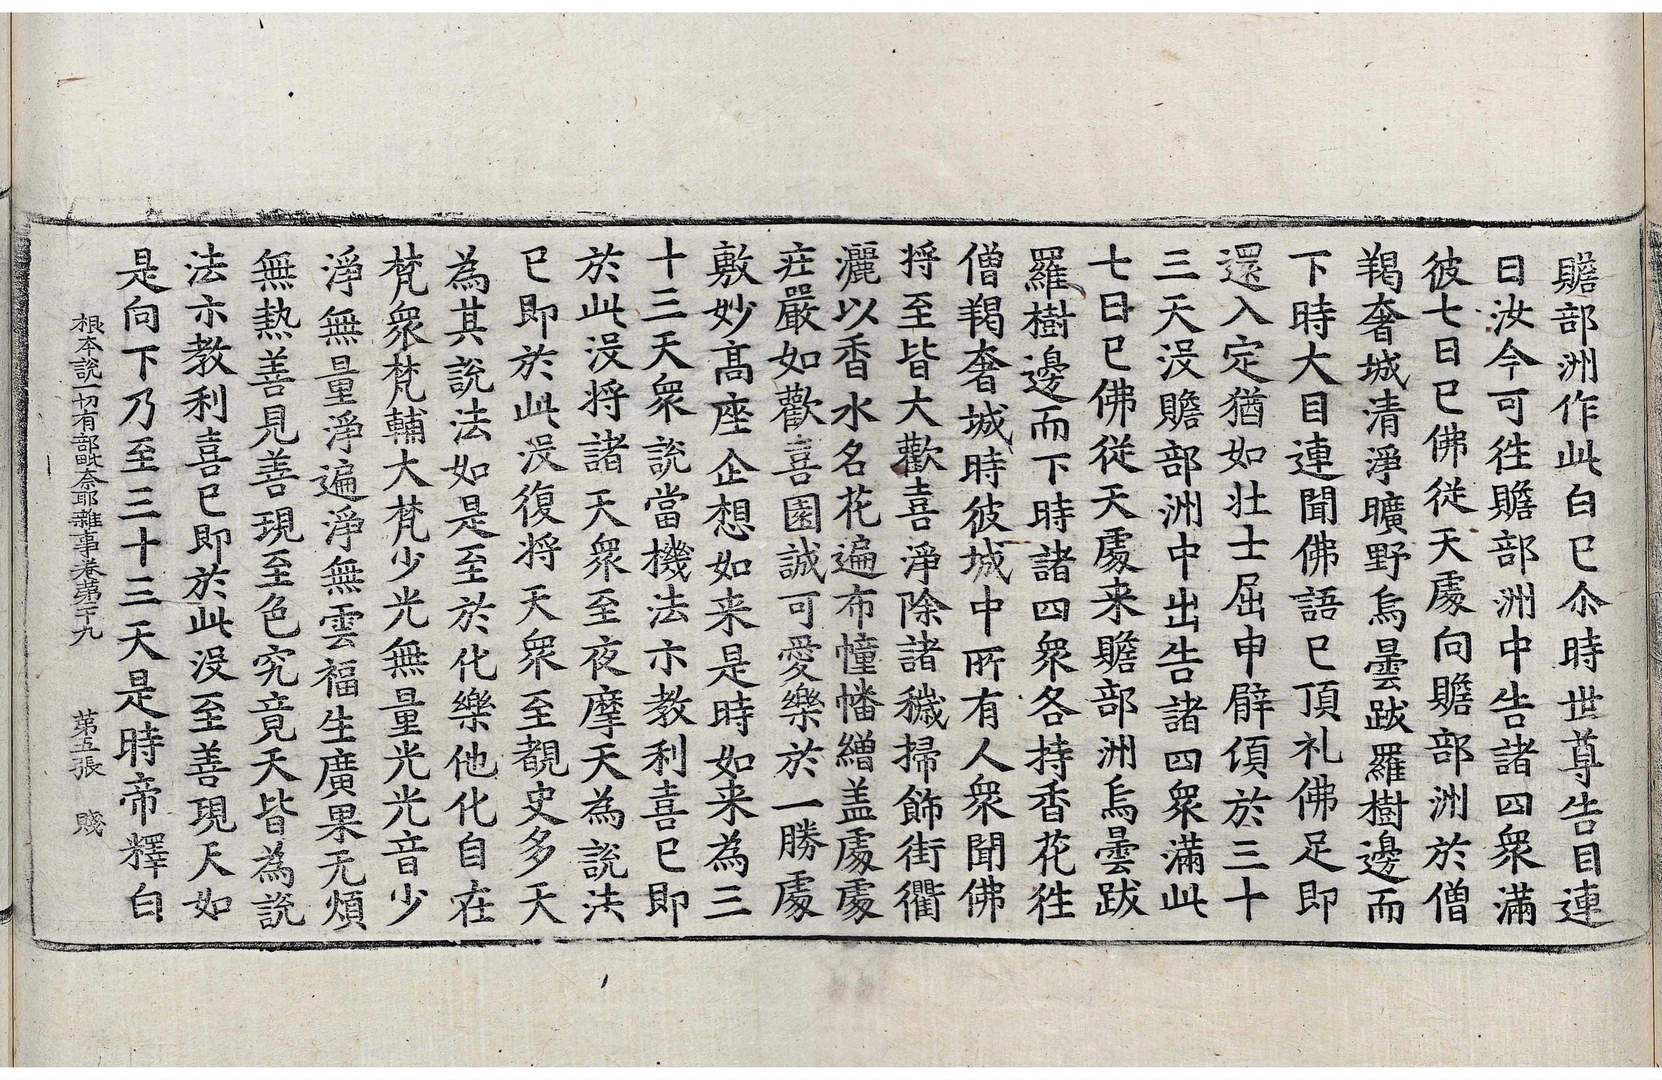 贍部洲作此白已尒時世尊告目連
曰汝今可徃贍部洲中告諸四衆滿
彼七日已佛従天處向贍部洲於僧
羯奢城清淨曠野烏曇跋羅樹邊而
下時大目連聞佛語已頂礼佛足即
還入定猶如壮士屈申臂傾於三十
三天没贍部洲中出告諸四衆滿此
七日已佛從天處来贍部洲烏曇跋
羅樹邊而下時諸四衆各持香花徃
僧羯奢城時彼城中所有人衆聞佛
将至皆大歡喜淨除諸穢掃飾街衢
灑以香水名花遍布幢幡繒盖處處
莊嚴如歡喜園誠可愛樂於一勝處
敷妙髙座企想如来是時如来為三
十三天衆説當機法示教利喜已即
於此没将諸天衆至夜摩天為説法
已即於此没復将天衆至覩史多天
為其説法如是至於化樂他化自在
梵衆梵輔大梵少光無量光光音少
淨無量淨遍淨無雲福生廣果无煩
無熱善見善現至色究竟天皆為説
法示教利喜已即於此没至善現天如
是向下乃至三十三天是時帝釋白
根本説一切有部毗奈耶雜事卷第二十九　第五張　賤